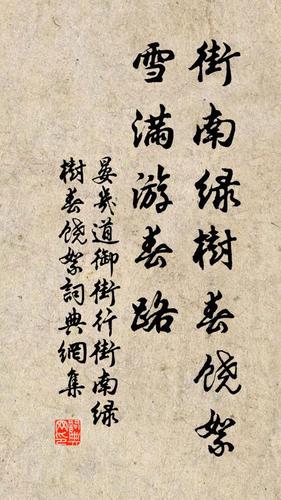 街南绿樹春饶絮
雪满游春路
晏幾道御街行街南绿
樹春饶絮詞典網集